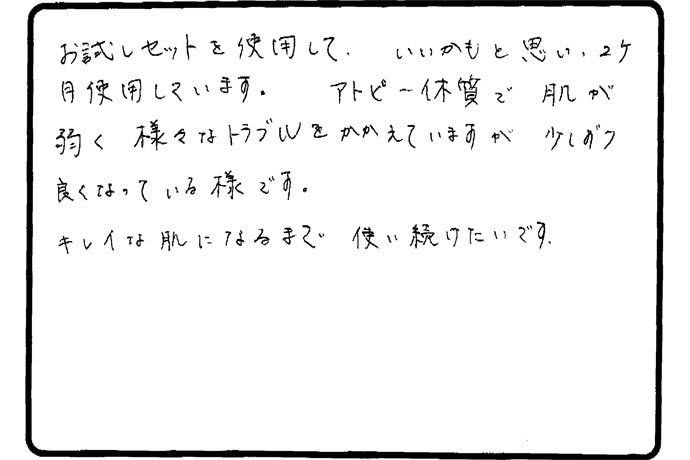 お試しセットを使用して、いいかもと思い、2ケ
月使用しています。 アトピー体質で 肌が
弱く 様々なトラブルをかかえていますが 少しずつ
良くなっている様です。
キレイな肌になるまで 使い続けたいです。